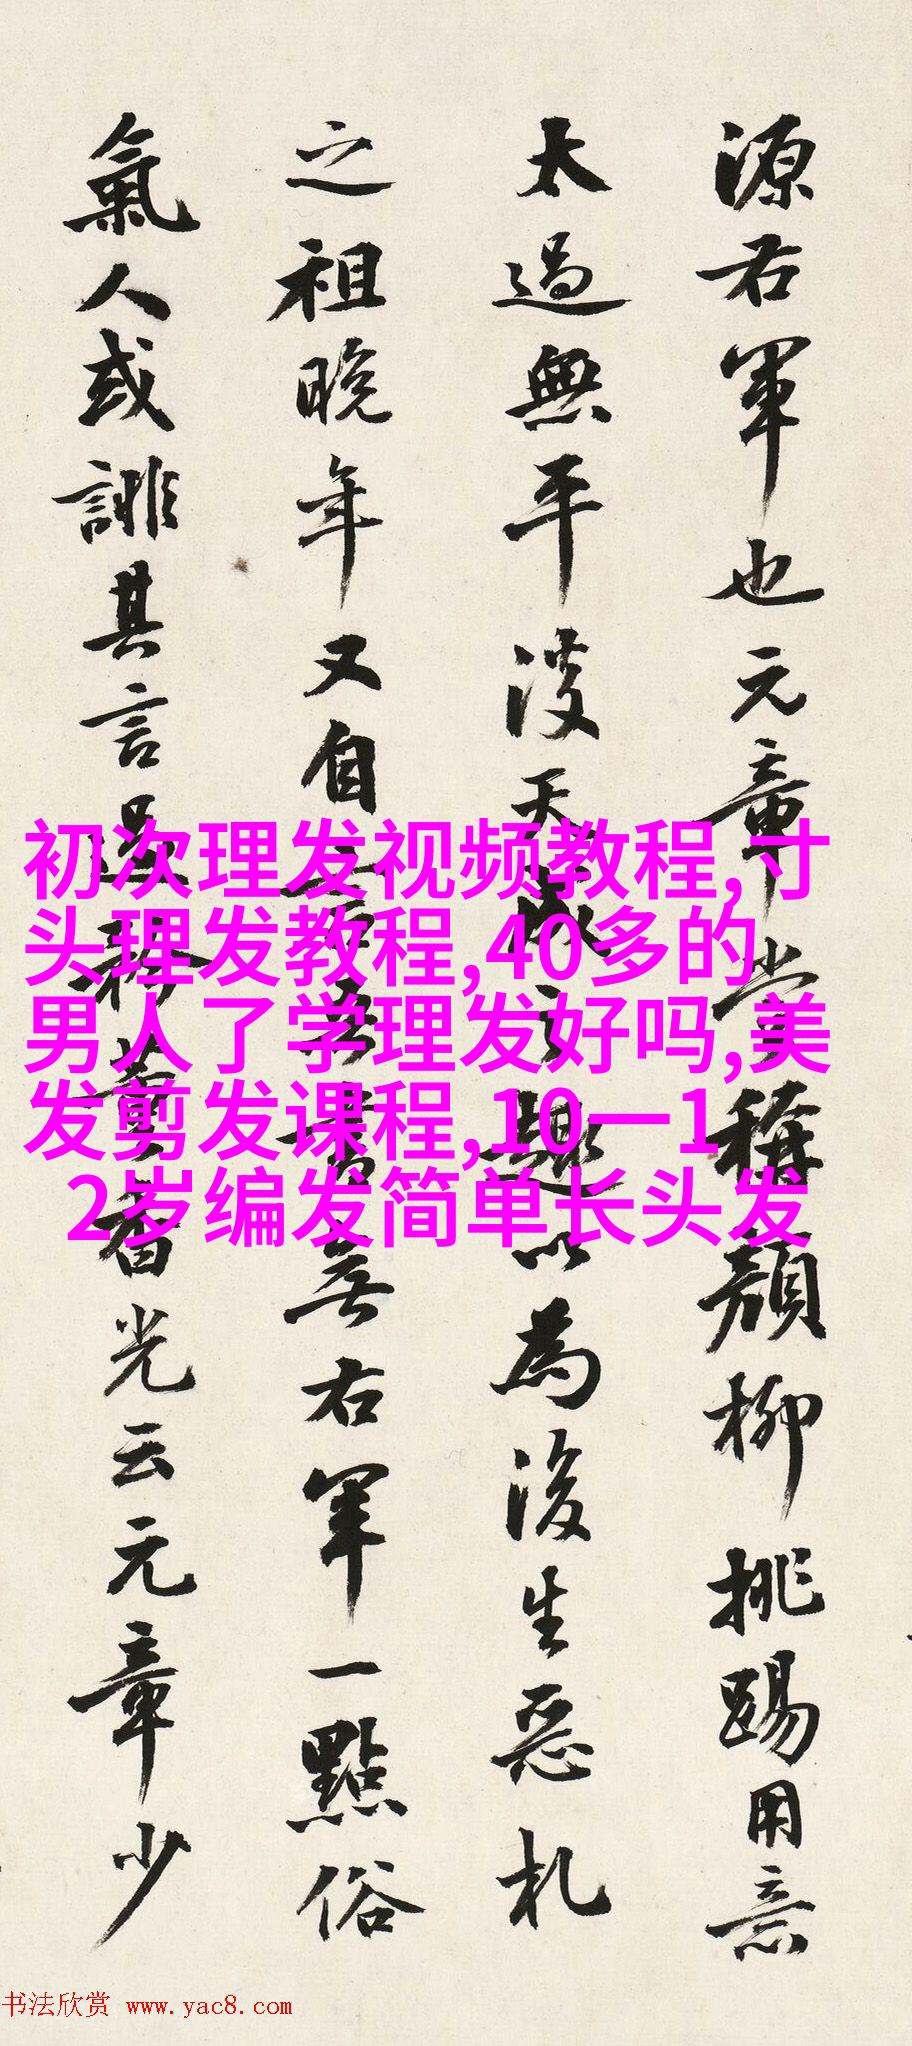 源右軍也元章嘗稱顔柳挑踢用意
太過無平淡天成之趣以為後生惡札
之祖晚年又自言無右軍一點俗
氣人或誹其言過黄香光云元章少
初次理发视频教程,寸
头理发教程,40多的
男人了学理发好吗,美
发剪发课程,10一1
2岁编发简单长头发
书法欣赏 www.yac8.com